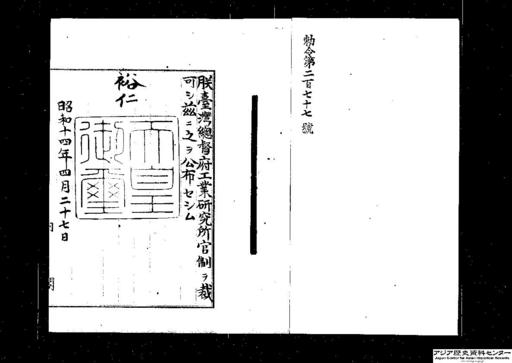 勅令第二百七十七號
朕臺灣總督府工業研究所官制ヲ裁
可シ茲ニ之ヲ公布セシム
裕仁
天皇
御璽
昭和十四年四月二十七日
アジア歴史資料センター
Japan Center for Asian Historical Records